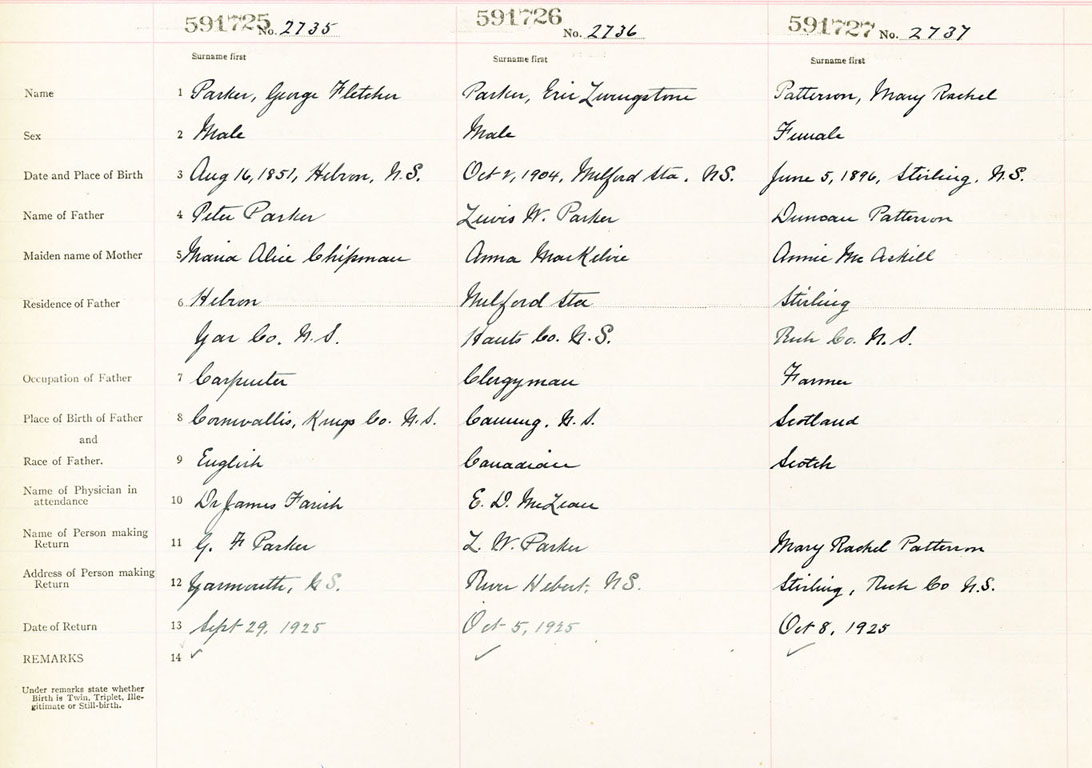 591725 No. 2735 591726 No. 2736 591727 No. 2737
Surname first Surname first Surname first
Name 1 Parker, George Fletcher Parker, Eric Livingstone Patterson, Mary Rachel
Sex 2 Male Male Female
Date and Place of Birth 3 Aug 16, 1851, Hebron, N.S. Oct 2, 1904, Milford Sta. N.S. June 5, 1896, Stirling, N.S.
Name of Father 4 Peter Parker Lewis W. Parker Duncan Patterson
Maiden name of Mother 5 Maria Alice Chipman Anna MacKelvie Annie McAskill
Residence of Father 6 Hebron Milford Sta Stirling
Yar Co. N.S. Hants Co. N.S. Rich Co. N.S.
Occupation of Father 7 Carpenter Clergyman Farmer
Place of Birth of Father 8 Cornwallis, Kings Co. N.S. Canning, N.S. Scotland
and
Race of Father. 9 English Canadian Scotch
Name of Physician in
attendance 10 Dr James Farish E. D. McLean
Name of Person making
Return 11 G. F Parker L. W. Parker Mary Rachel Patterson
Address of Person making
Return 12 Yarmouth, N.S. River Hebert, N.S. Stirling, Rich Co N.S.
Date of Return 13 Sept 29, 1925 Oct 5, 1925 Oct 8, 1925
REMARKS 14 ✓ ✓ ✓
Under remarks state whether
Birth is Twin, Triplet, Ille-
gitimate or Still-birth.